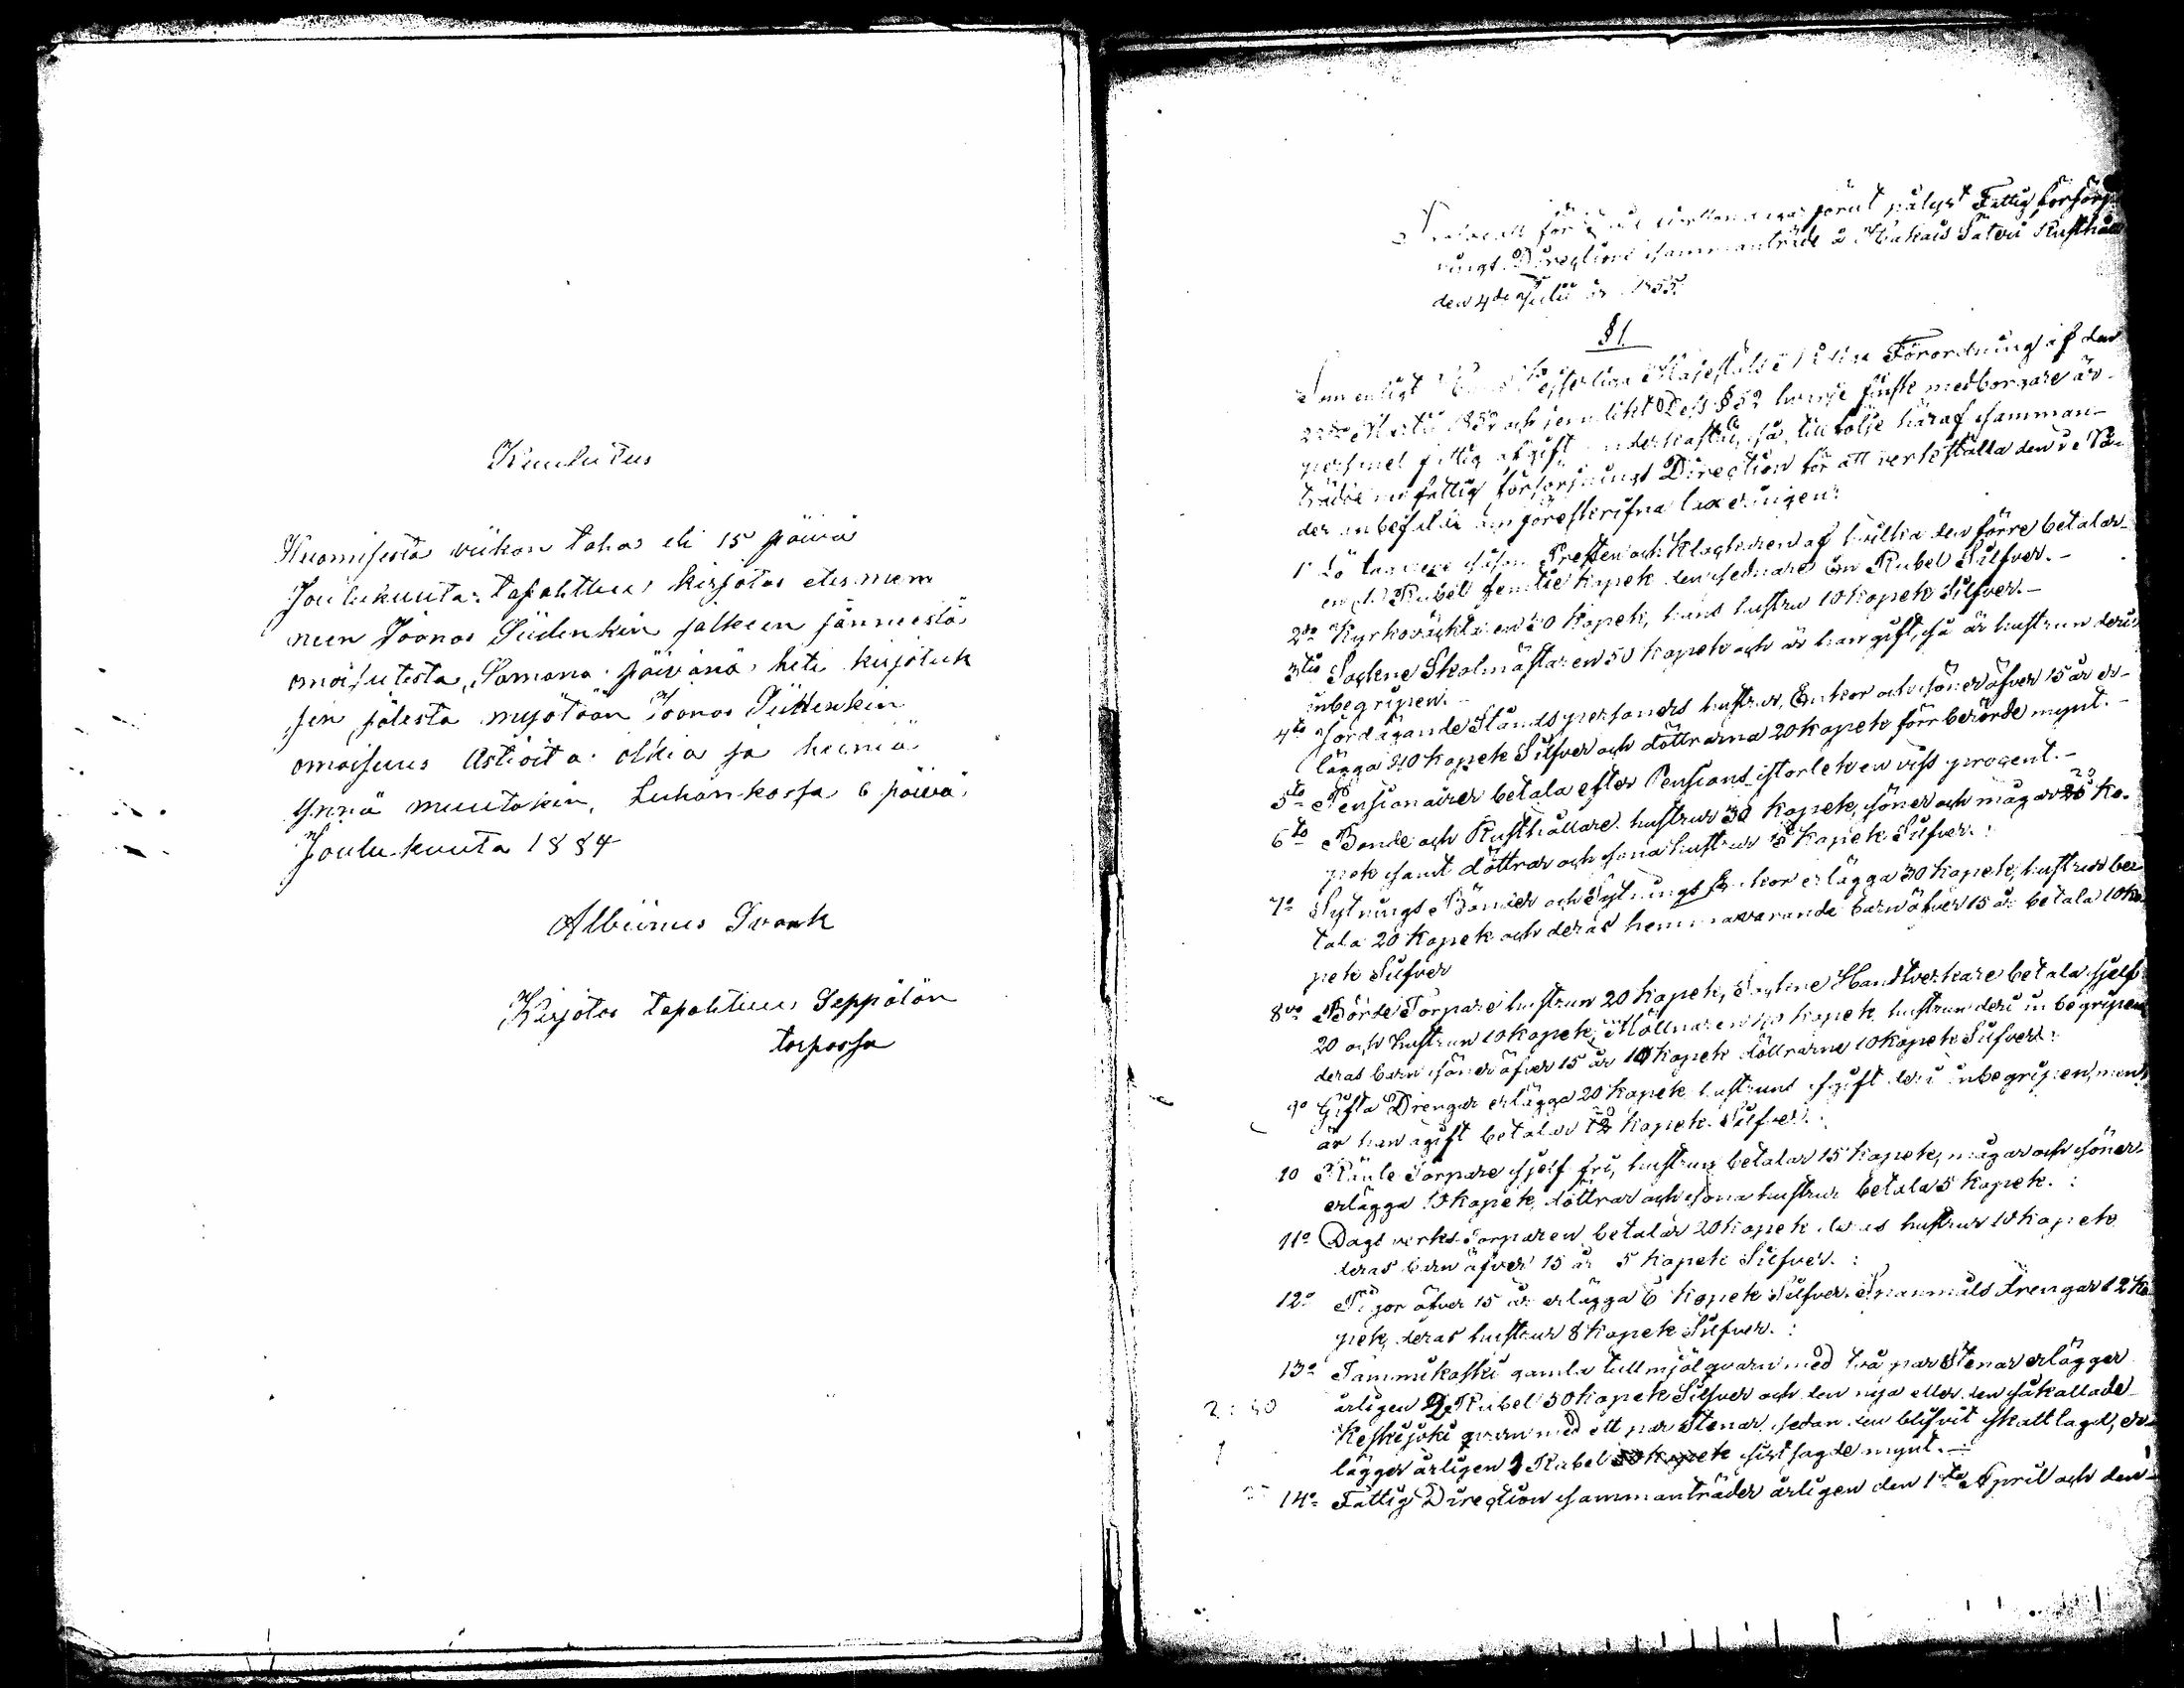 Kuulutus
Huomisesta viikon takaa eli 15 päivä
Joulukuuta: tapahtuu kirjotos etesmem
neen Joonas Siidenkin jälkeen jänneestä
omaisutesta, Samana päivänä heti kirjotuk
sen jälesta myötään Joonas Siidenkin
omaisuus Astioita olkia ja heiniä
ynnä muutakin, Luhankossa 6 päivä
Joulukuuta 1884
Albiinus Svank
Kirjotos tapahtuu Seppälän
torpassa
förut pålyst Fattig försörj
nings Directions sammanträde å Säteri Rusthåll
den 4de Julii år 1855.
§ 1.
Som enligt Kejserliga Majestäts Nådiga Förordning af den
22dra Martii 1852 och jemlikt Dess § 52 hvarje finsk medborgare är
personel fattig afgift underkastad, så till följe häraf samman-
trädde nu fattig försörjnings Direction för att verkställa den i
der anbefalde och föreskrifna taxeringen:
1 såsom Presten och Klockaren af hvilka den förre betalar
en Rubel femtie kopek den sednare En Rubel Silfver.-
2do Kyrkoväktaren 20 Kopek, hans hustru 10 kopek Silfver.-
3tio Sockne Skolmästaren 50 kopek och är han gift, så är hustrun deri
inbegripen.-
4to Jordägande Ståndspersoners hustrur, Enkor och söner öfver 15 år er-
lägga 40 kopek Silfver och döttrarna 20 kopek förr berörde mynt.-
5to Pensionairer betala efter Pensions storleken viss procent.-
6to Bonde och Rusthållare hustrur 30 kopek, söner och mågar 20 ko-
pek samt döttrar och sona hustrur 15 Kopek Silfver.:
7o Sytnings Bönder och Sytnings Enkor erlägga 30 kopek, hustrur be-
tala 20 kopek och deras hemmavarande barn öfver 15 år betala 10 ko-
pek Silfver
8vo Börde Torpare hustrun 20 kopek, Sockne Handtverkare betala sjelf
20 och hustrun 10 kopek, Möllnaren 40 kopek hustrun deri inbegripen
deras barn söner öfver 15 år 10 kopek döttrarne 10 kopek Silfver:
9o Gifta Drengar erlägga 20 kopek hustruns afgift deri inbegripen, men
är han ogift betalar 12 kopek Silfver.:
10 Torpare sjelf fri, hustrun betalar 15 kopek, mågar och söner
erlägga 10 kopek, döttrar och sona hustrur betala 5 kopek.:
11o Dags verks Torparen betalar 20 kopek deras hustrur 10 kopek
deras barn öfver 15 år 5 kopek Silfver.:
12o Pigor öfver 15 år erlägga 6 kopek Silfver. Spanmåls drengar 12 ko
pek, deras hustrur 8 kopek Silfver.:
13o Tammikoski gamla tullmjölqvarn med två par Stenar erlägger
2:50 årligen 2 Rubel 50 kopek Silfver och den nya eller den såkallade
Keskijoki qvarn med ett par Stenar, sedan den blifvit skattlagd, er-
1 lägger årligen 1 Rubel 50 kopek sist sagde mynt.-
14o Fattig Direction sammanträder årligen den 1sta April och den